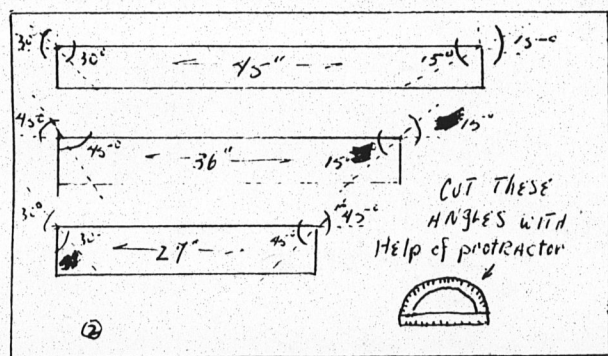 30° 30° 45" 15° 15°
45° 45° 36" 15° 15°
30° 30° 27" 45° 45°
CUT THESE
ANGLES WITH
HELP of PROTRACTOR
②